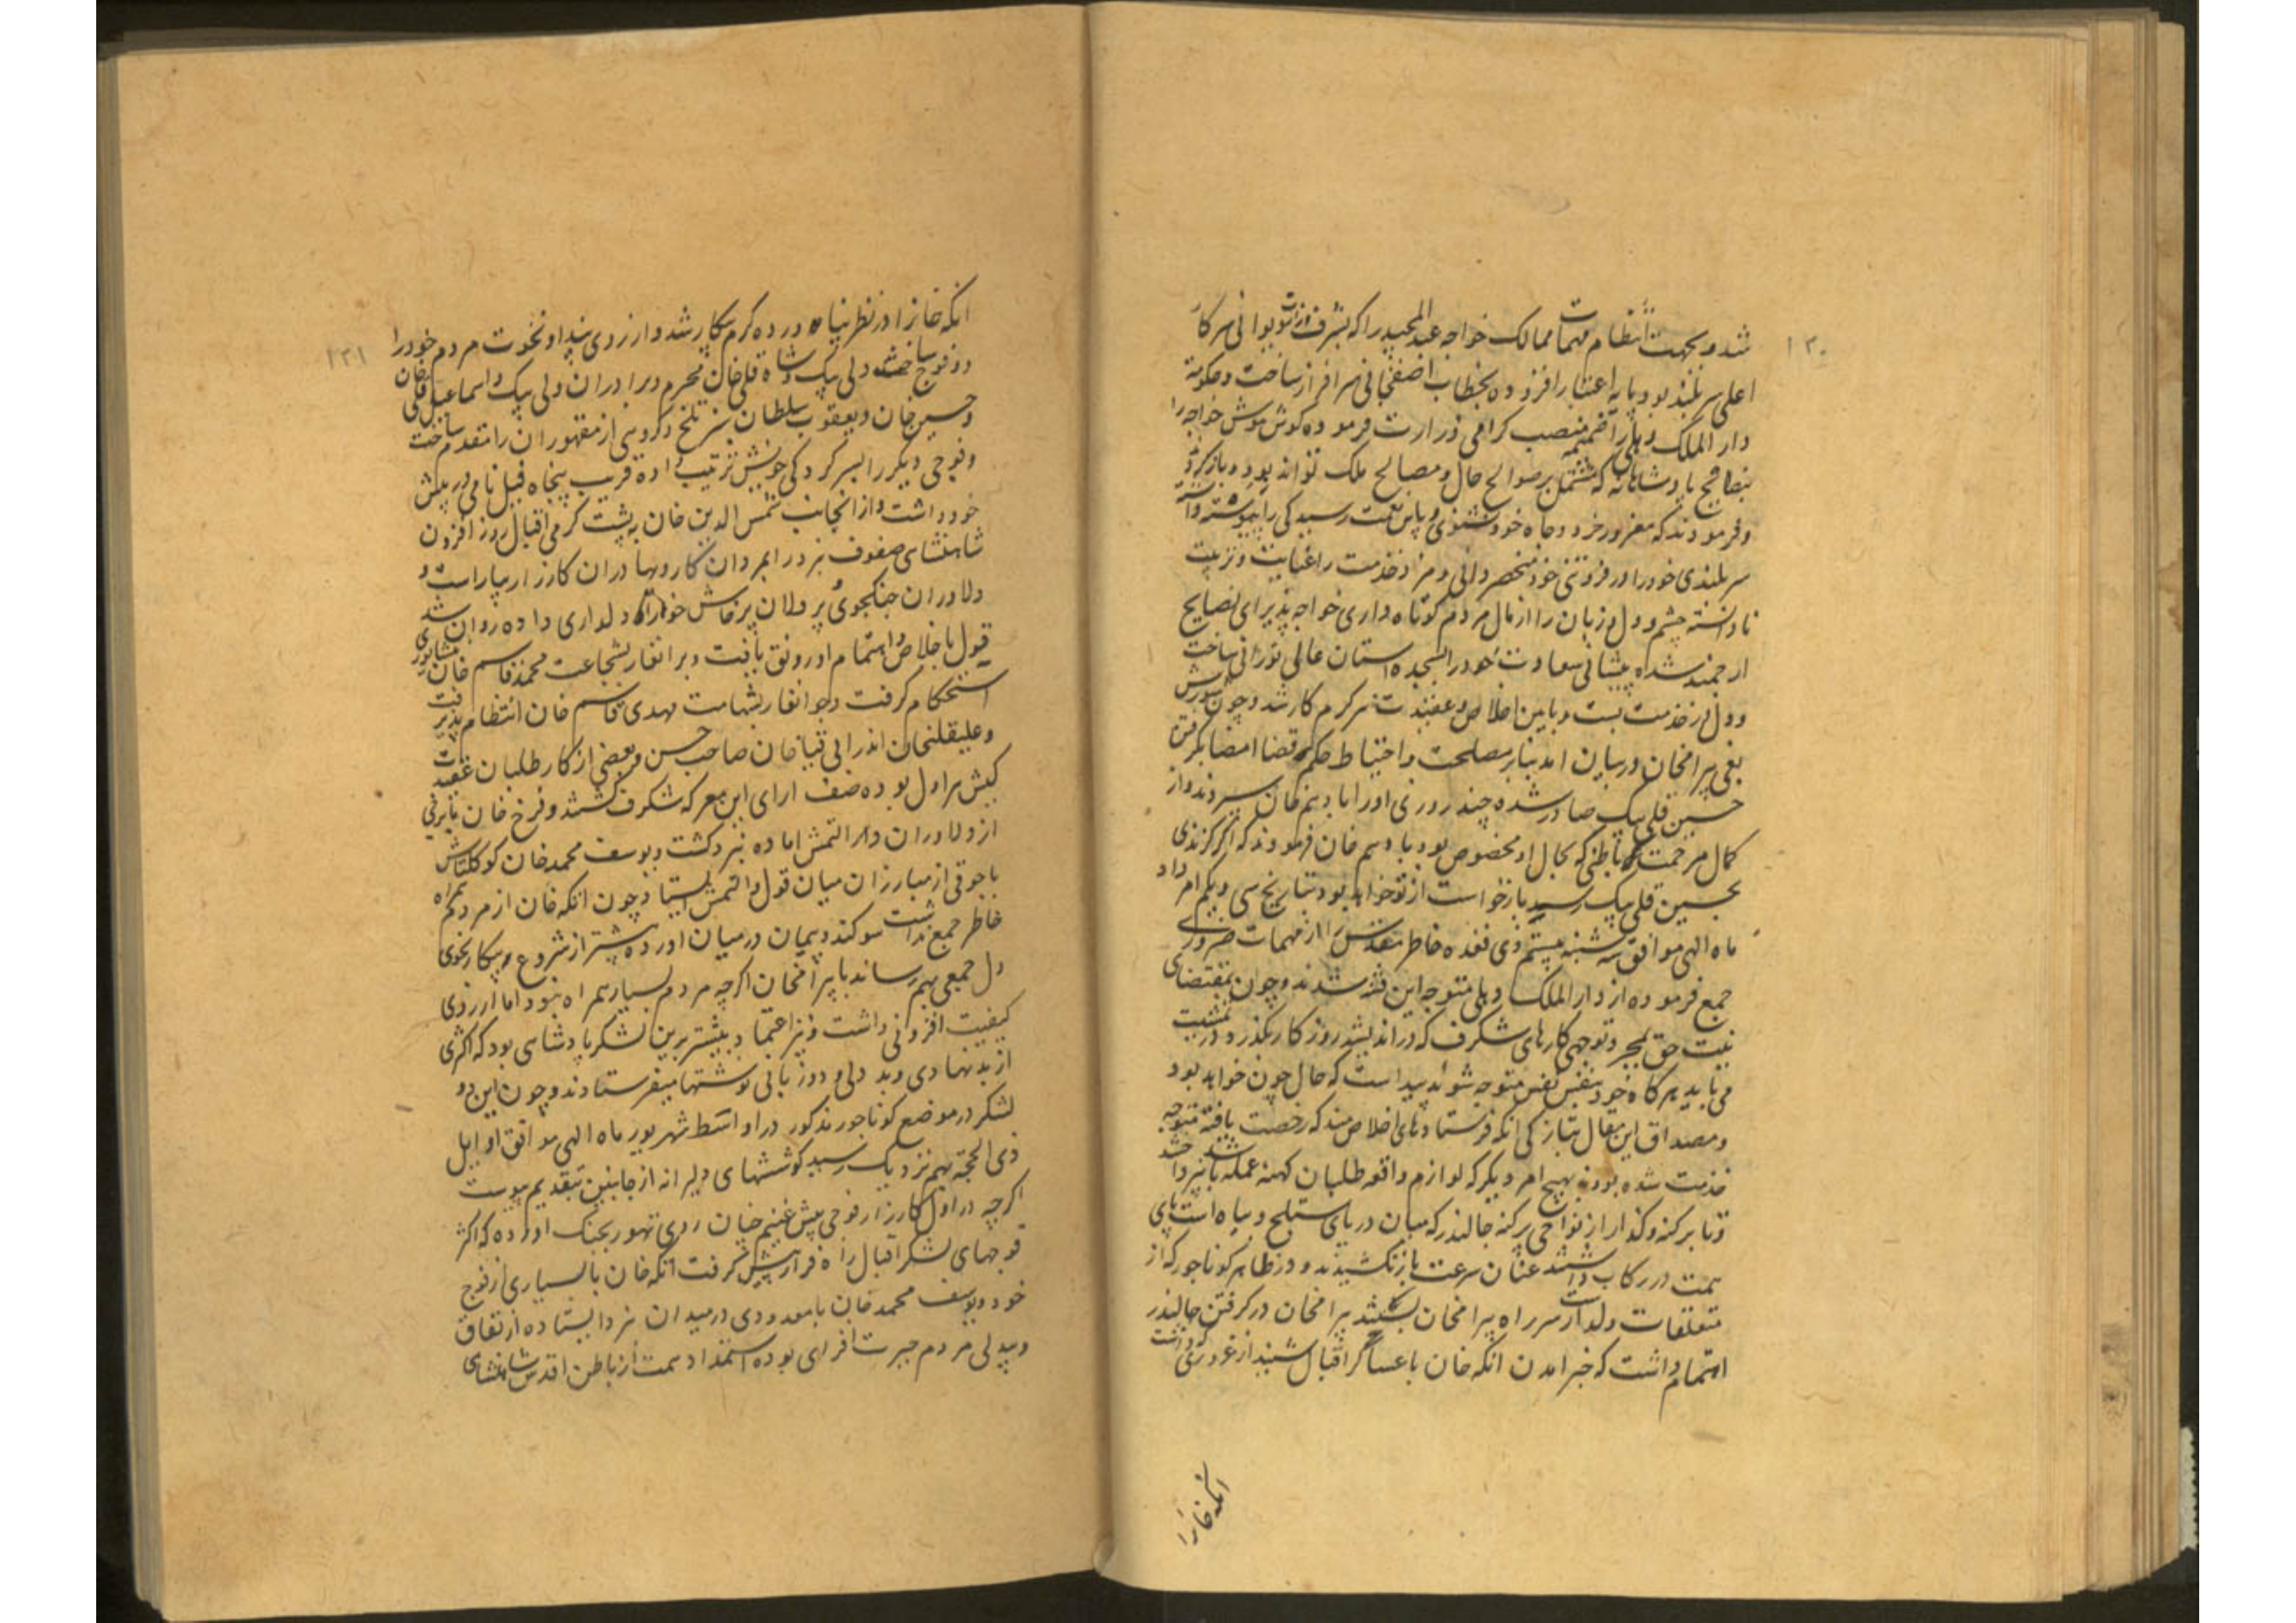 ۱۳۰
شد و بجهت انتظام مهمات ممالک خواجه عبدالمجید را که بشرف دیوانی سرکار
اعلی سربلند بود پایه اعتبار افزوده بخطاب اصفخانی سرافراز ساخت و حکومة
دار الملک دهلی را ضمیمه منصب کرامی وزارت فرموده کوش هوش خواجه را
بنصائح پادشاهانه که مشتمل بر صوالح حال و مصالح ملک تواند بود باز کرد
و فرمودند که مغرور خرد و جاه خود نشوی و پاس نعمت رسیدکی را پیوسته داشته
سربلندی خود را در فروتنی خود منحصر دانی و مزد خدمت را عنایت و تربیت
نادانسته چشم و دل و زبان را از مال مردم کوتاه داری خواجه پذیرای نصایح
ارجمند شده پیشانی سعادت خود را بسجده استان عالی نورانی ساخت
و دل در خدمت بست و باین اخلاص و عقیدت سرکرم کار شد و چون شورش
بغی بیرامخان درمیان امد بنابر مصلحت و احتیاط حکم قضا امضا بکرفتن
حسین قلی بیک صادر شده چند روزی اورا بادهم خان سپردند و از
کمال مرحمت باطنی که بحال او مخصوص بود بادهم خان فرمودند که اکر کزندی
بحسین قلی بیک رسید بازخواست از تو خواهد بود بتاریخ سی و یکم امرداد
ماه الهی موافق سه شنبه بیستم ذی قعده خاطر مقدس را از مهمات ضروری
جمع فرموده از دار الملک دهلی متوجه این شدند و چون بمقتضای
نیت حق بمجرد توجهی کارهای شکرف که در اندیشه روزکار نکذرد تمشیت
می یابد هرکاه خود بنفس نفیس متوجه شوند پیداست که حال چون خواهد بود
و مصداق این مقال بتازکی انکه فرستادهای اخلاص مند که رخصت یافته متوجه
خدمت شده بودند بهیچ امر دیکر که لوازم واقعه طلبان کهنه عمله باشد نپرداخته
و تا پرکنه وکدار از نواحی پرکنه جالندر که میان دریای ستلج و بیاه است پای
همت در رکاب داشتند عنان سرعت باز نکشیدند و در ظاهر کوناجور که از
متعلقات ولدار است سرراه بیرامخان بکشند بیرامخان در کرفتن جالندر
اهتمام داشت که خبر امدن انکه خان با عساکر اقبال شنید از غروری که داشت
انکه خانرا
۱۳۱
انکه خانرا در نظر نیاورده کرم پیکار شد و از روی پندار و نخوت مردم خود را
دو فوج ساخت ولی بیک و شاه قلی خان محرم و برادران ولی بیک و اسماعیل قلی خان
و حسین خان و یعقوب سلطان سبز تلخ و کروهی از مقهوران را مقدم ساخت
و فوجی دیکر را بسرکردکی خویش ترتیب داده قریب پنجاه فیل نامی در پیش
خود داشت و از انجانب شمس الدین خان به پشت کرمی اقبال روز افزون
شاهنشاهی صفوف نبرد را بمردان کار و بهادران کارزار بیاراست و
دلاوران جنکجوی پردلان پرخاش خواررا دلداری داده روان شد
قول باخلاص و اهتمام او رونق یافت و برانغار بشجاعت محمد قاسم خان نیشابوری
استحکام کرفت و جوانغار بشهامت مهدی قاسم خان انتظام پذیرفت
و علیقلیخان اندرابی قیاخان صاحب حسن و بعضی از کار طلبان عقیدت
کیش هراول بوده صف ارای این معرکه شکرف کشتند و فرخ خان با برخی
از دلاوران در التمش اماده نبرد کشت و یوسف محمد خان کوکلتاش
با جوقی از مبارزان میان قول و التمش ایستاد و چون انکه خان از مردم همراه
خاطر جمع نداشت سوکند و پیمان درمیان اورده پیشتر از شروع پیکار نحوی
دل جمعی بهم رساند با بیرامخان اکرچه مردم بسیار همراه نبود اما از روی
کیفیت افزونی داشت و نیز اعتماد بیشتر برین لشکر پادشاهی بود که اکثری
از بدنهادی و بد دلی و دو زبانی نوشتها میفرستادند و چون این دو
لشکر در موضع کوناجور مذکور در اواسط شهریور ماه الهی موافق اوایل
ذی الحجة بهم نزدیک رسید کوششهای دلیرانه از جانبین بتقدیم پیوست
اکرچه در اول کارزار فوجی پیش غنیم چنان روی تهور بجنک اورده که اکثر
فوجهای لشکر اقبال راه فرار پیش کرفت انکه خان با بسیاری از فوج
خود و یوسف محمد خان با معدودی در میدان نبرد ایستاده از نفاق
و بیدلی مردم حیرت افزای بوده استمداد همت از باطن اقدس شاهنشاهی